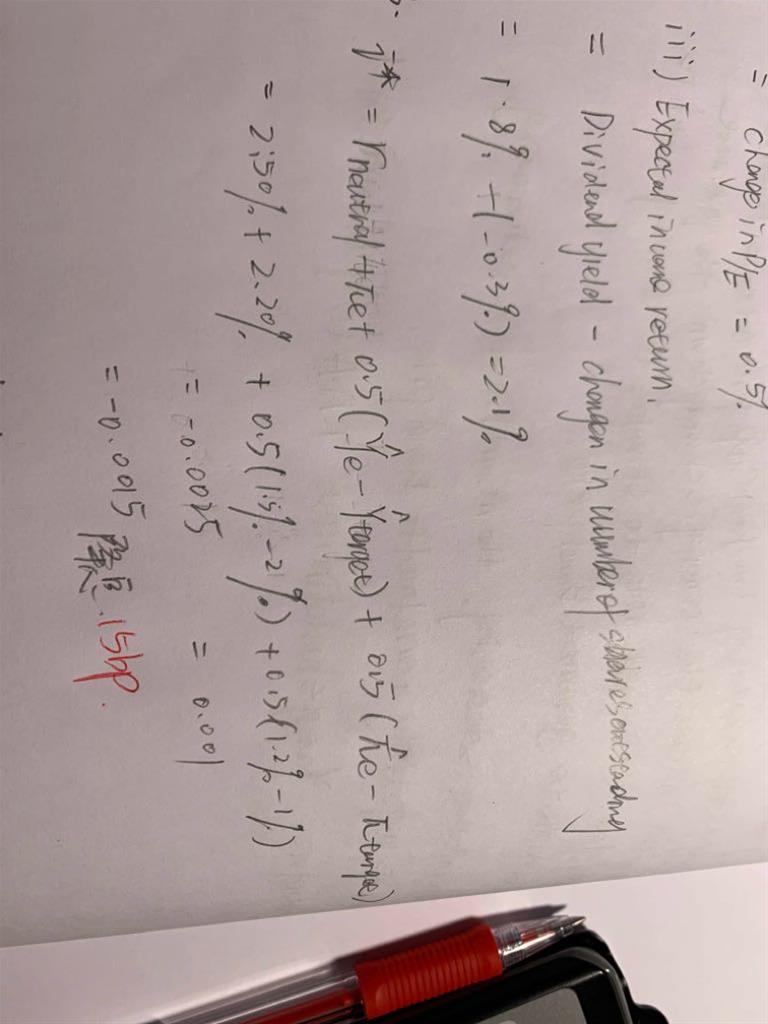 = change in P/E = 0.5%
iii) Expected income return.
= Dividend yield - changen in number of shares
= 1.8% - (-0.3%) = 2.1%
i* = rneutral + πe + 0.5 (Ŷe - Ŷtarget) + 0.5 (π̂e - πtarget)
= 2.50% + 2.20% + 0.5 (1.5% - 2%) + 0.5 (1.2% - 1%)
= -0.0025 = 0.001
= -0.0015 15bp.